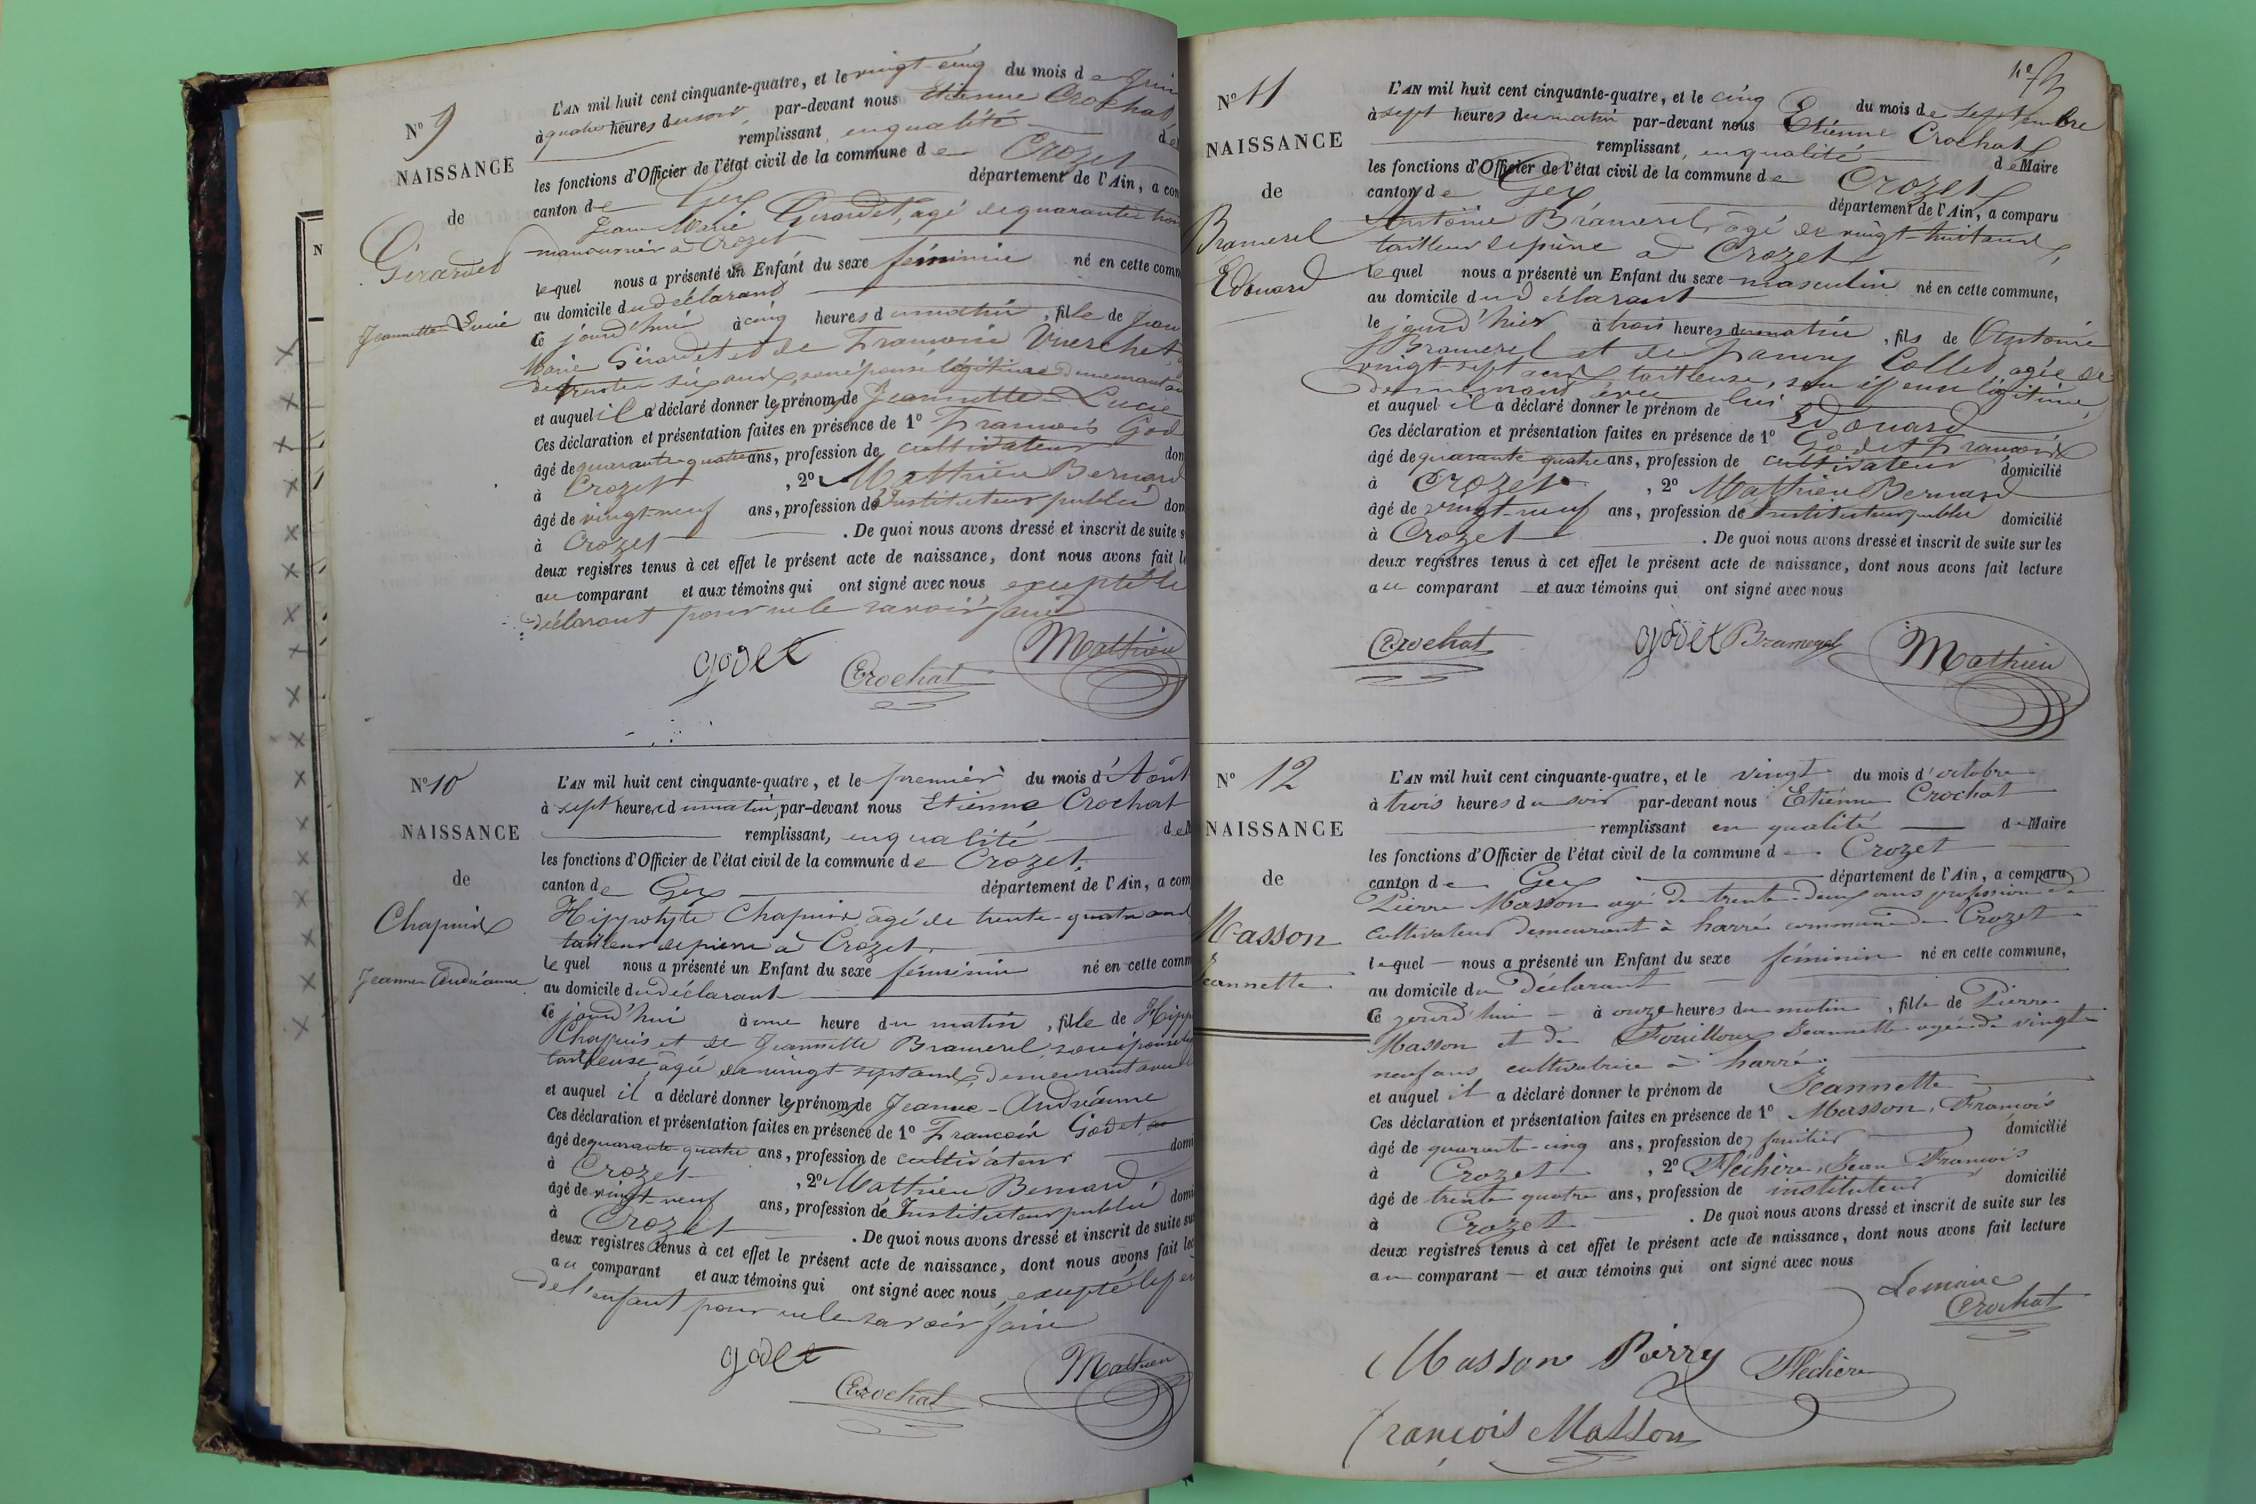 N° 9
NAISSANCE
de
Girardet
Jeannette Lucie
L'AN mil huit cent cinquante-quatre, et le vingt-cinq du mois de Juin
à quatre heures du soir, par-devant nous Etienne Crochat
remplissant, en qualité de
les fonctions d'Officier de l'état civil de la commune de Crozet
canton de Gex département de l'Ain, a com
Jean Marie Girardet, âgé de quarante trois
manouvrier à Crozet
lequel nous a présenté un Enfant du sexe féminin né en cette comm
au domicile du déclarant
Ce jourd'hui à cinq heures du matin, fille de Jean
Marie Girardet et de Françoise Vuerchet,
de trente six ans, son épouse légitime demeurant av
et auquel il a déclaré donner les prénoms de Jeannette-Lucie
Ces déclaration et présentation faites en présence de 1° François God
âgé de quarante-quatre ans, profession de cultivateur dom
à Crozet, 2° Mathieu Bernard
âgé de vingt-neuf ans, profession d'Instituteur public dom
à Crozet. De quoi nous avons dressé et inscrit de suite s
deux registres tenus à cet effet le présent acte de naissance, dont nous avons fait le
au comparant et aux témoins qui ont signé avec nous excepté le
déclarant pour ne le savoir faire
godet
Crochat
Mathieu
N° 10
NAISSANCE
de
Chapuis
Jeanne Andréanne
L'AN mil huit cent cinquante-quatre, et le premier du mois d'Août
à sept heures du matin, par-devant nous Etienne Crochat
remplissant, en qualité de
les fonctions d'Officier de l'état civil de la commune de Crozet,
canton de Gex département de l'Ain, a com
Hippolyte Chapuis âgé de trente-quatre ans
tailleur de pierre à Crozet
lequel nous a présenté un Enfant du sexe féminin né en cette comm
au domicile du déclarant
Ce jourd'hui à une heure du matin, fille de Hipp
Chapuis et de Jeannette Bramerel, son épouse
tailleuse, âgée de vingt-sept ans, demeurant avec
et auquel il a déclaré donner les prénoms de Jeanne-Andréanne
Ces déclaration et présentation faites en présence de 1° François Godet
âgé de quarante-quatre ans, profession de cultivateur domi
à Crozet, 2° Mathieu Bernard,
âgé de vingt-neuf ans, profession d'Instituteur public domi
à Crozet. De quoi nous avons dressé et inscrit de suite su
deux registres tenus à cet effet le présent acte de naissance, dont nous avons fait lec
au comparant et aux témoins qui ont signé avec nous, excepté le pe
de l'enfant pour ne le savoir faire
godet
Crochat
Mathieu
N° 11
NAISSANCE
de
Bramerel
Edouard
L'AN mil huit cent cinquante-quatre, et le cinq du mois de Septembre
à sept heures du matin par-devant nous Etienne Crochat
remplissant, en qualité de Maire
les fonctions d'Officier de l'état civil de la commune de Crozet
canton de Gex département de l'Ain, a comparu
Antoine Bramerel, âgé de vingt-huit ans,
tailleur de pierre à Crozet
lequel nous a présenté un Enfant du sexe masculin né en cette commune,
au domicile du déclarant
le jourd'hier à trois heures du matin, fils de Antoine
Bramerel et de Fanny Collet, agée de
vingt-sept ans, tailleuse, son épouse légitime,
demeurant avec lui
et auquel il a déclaré donner le prénom de Edouard
Ces déclaration et présentation faites en présence de 1° Godet François
âgé de quarante quatre ans, profession de cultivateur domicilié
à Crozet, 2° Mathieu Bernard
âgé de vingt-neuf ans, profession d'Instituteur public domicilié
à Crozet. De quoi nous avons dressé et inscrit de suite sur les
deux registres tenus à cet effet le présent acte de naissance, dont nous avons fait lecture
au comparant et aux témoins qui ont signé avec nous
Crochat
godet
Bramerel
Mathieu
N° 12
NAISSANCE
de
Masson
Jeannette
L'AN mil huit cent cinquante-quatre, et le vingt du mois d'octobre
à trois heures du soir par-devant nous Etienne Crochat
remplissant en qualité de Maire
les fonctions d'Officier de l'état civil de la commune de Crozet
canton de Gex département de l'Ain, a comparu
Pierre Masson agé de trente-deux ans profession de
cultivateur demeurant à harré commune de Crozet
lequel nous a présenté un Enfant du sexe féminin né en cette commune,
au domicile du Déclarant
Ce jourd'hui à onze heures du matin, fille de Pierre
Masson et de Fouilloux Jeannette agée de vingt
neuf ans cultivatrice à harré
et auquel il a déclaré donner le prénom de Jeannette
Ces déclaration et présentation faites en présence de 1° Masson, François
âgé de quarante-cinq ans, profession de fruitier domicilié
à Crozet, 2° Fléchère, Jean François
âgé de trente quatre ans, profession de instituteur domicilié
à Crozet. De quoi nous avons dressé et inscrit de suite sur les
deux registres tenus à cet effet le présent acte de naissance, dont nous avons fait lecture
au comparant et aux témoins qui ont signé avec nous
Le maire
Crochat
Masson Pierry
Fléchère
François Masson